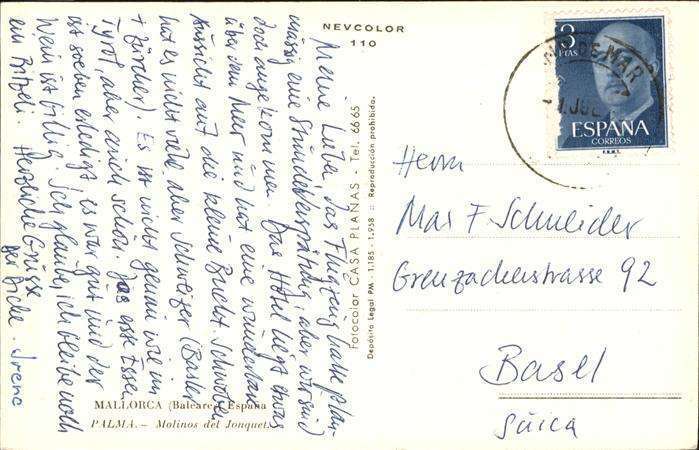 NEVCOLOR
110
Meine Liebe das Flugzeug hatte plan-
mässig eine Stunde Verspätung, aber wir sind
doch angekommen. Das Hotel liegt etwas
über dem Meer und hat eine wunderbare
Aussicht auf die kleine Bucht. Schwaben
hat es nicht viele aber Schweizer (Basler
+ Zürcher). Es ist nicht genau wie im
Tyrol, aber auch schön. Das erste Essen
ist soeben erledigt es war gut und der
Wein ist billig. Ich glaube, ich bleibe noch
ein Bitzeli. Herzliche Grüsse
Irene
MALLORCA (Baleares) España
PALMA.— Molinos del Jonquet
Fotocolor CASA PLANAS - Tel. 6665
Depósito Legal PM - 1.185 - 1.958 :: Reproducción prohibida.
3
PTAS
ESPAÑA
CORREOS
F.N.M.T.
DE MAR
1 JUL
Herrn
Max F. Schneider
Grenzacherstrasse 92
Basel
Suica